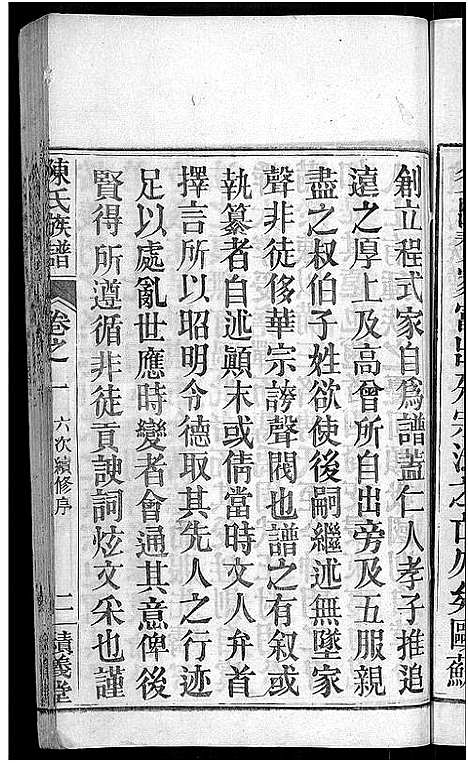 創立程式家自爲譜蓋仁人孝子推追
遠之厚上及高曾所自出旁及五服親
盡之叔伯子姓欲使後嗣繼述無墜家
聲非徒侈華宗誇聲閥也譜之有叙或
執纂者自述顚末或倩當時文人弁首
擇言所以昭明令德取其先人之行迹
足以處亂世應時變者會通其意俾後
賢得所遵循非徒貢諛詞炫文采也謹
陳氏族譜 卷之一 六次續修序 二 積義堂